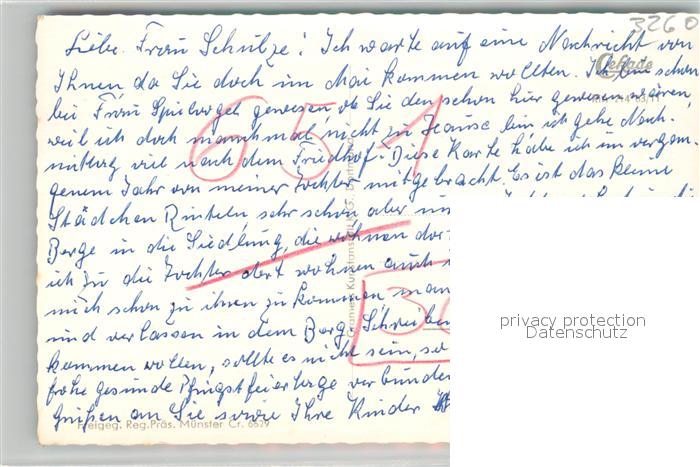 3260
Liebe Frau Schulze! Ich warte auf eine Nachricht von
Ihnen da Sie doch im Mai kommen wollten. Ich bin schon
Cekade
bei Frau Spielvogel gewesen ob Sie den schon hier gewesen wären
weil ich doch manchmal nicht zu Hause bin ich gehe Nach-
mittag viel nach dem Friedhof. Diese Karte habe ich im vergan-
genem Jahr von meiner Tochter mitgebracht. Es ist das kleine
Städchen Rinteln, sehr schön aber
Berge in die Siedlung, die wohnen dor
ich zu die Tochter dort wohnen auch
mich schon zu ihnen zu kommen man
und verlassen in dem Berg. Schreiben
kommen wollten, sollte es nicht sein, so
frohe gesunde Pfingstfeiertage verbunden
Grüßen an Sie sowie Ihre Kinder
651
30
Freigeg. Reg.Präs. Münster Cr. 6629
privacy protection
Datenschutz